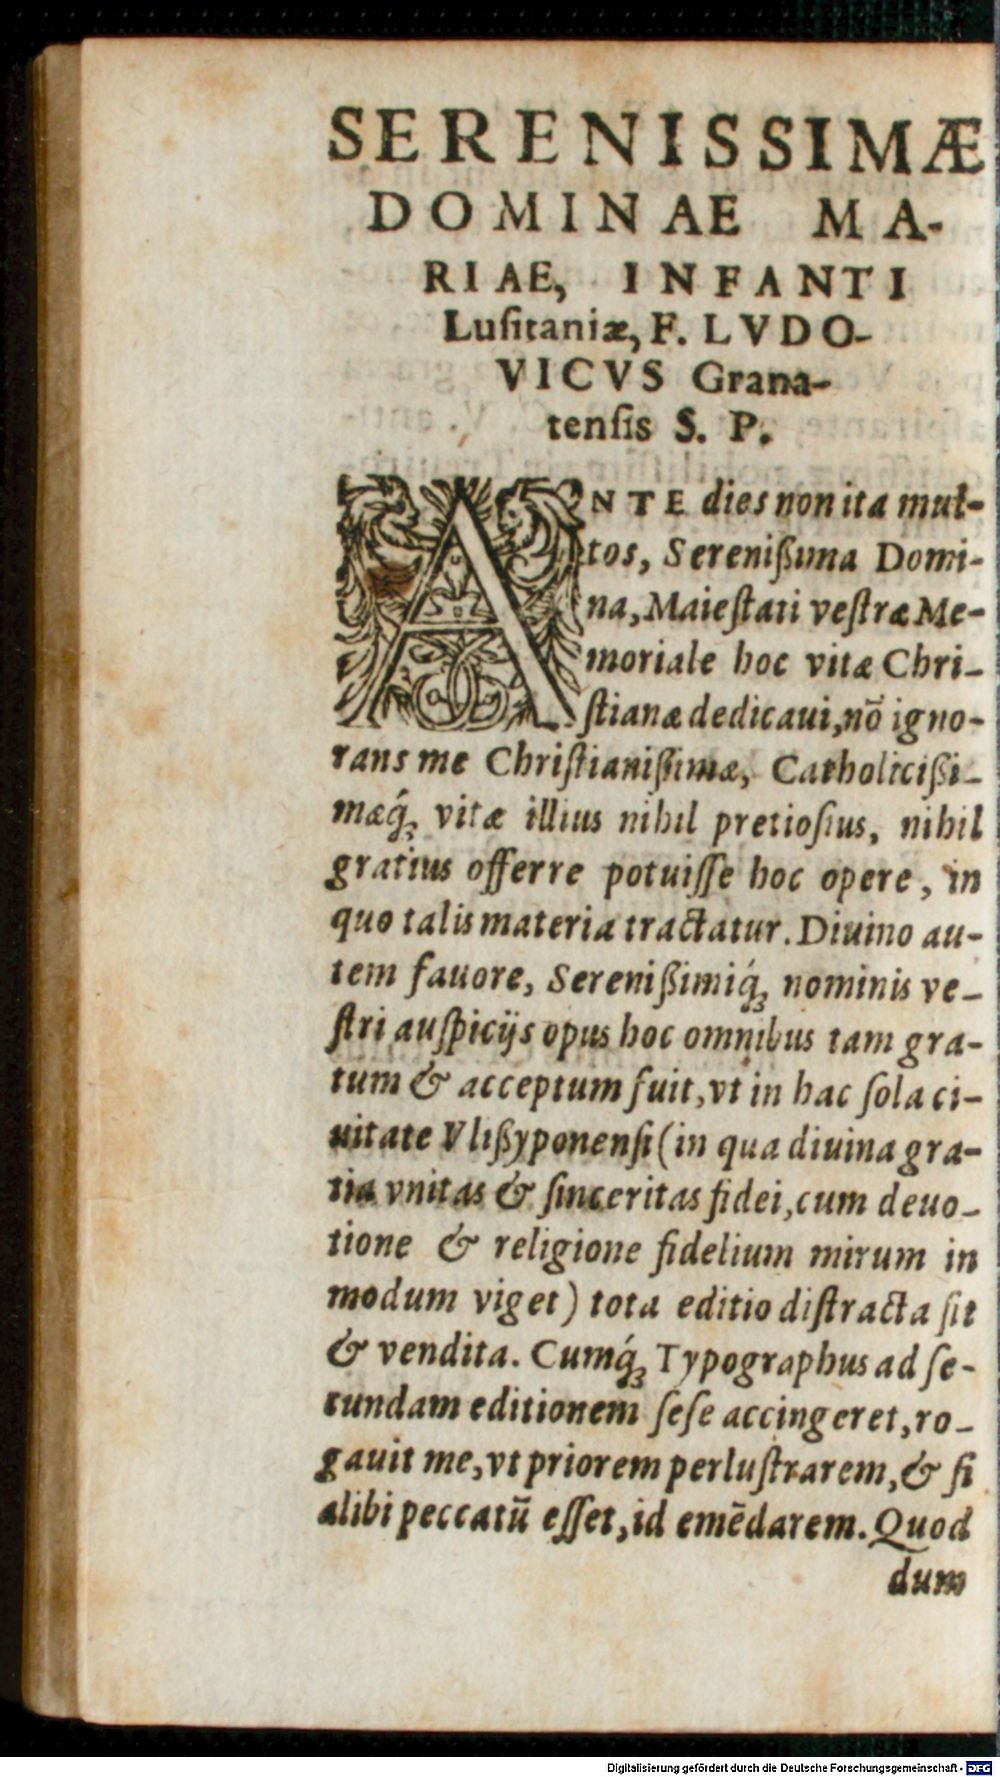 SERENISSIMÆ
DOMINAE MA-
RIAE, INFANTI
Luſitaniæ, F. LVDO-
VICVS Grana-
tenſis S. P.
ANTE dies non ita mul-
tos, Sereniſſima Domi-
na, Maieſtati veſtræ Me-
moriale hoc vitæ Chri-
ſtianæ dedicaui, nõ igno-
rans me Chriſtianiſſimæ, Catholiciſſi-
mæq́ꝫ vitæ illius nihil pretioſius, nihil
gratius offerre potuiſſe hoc opere, in
quo talis materia tractatur. Diuino au-
tem fauore, Sereniſſimiq́ꝫ nominis ve-
ſtri auſpicijs opus hoc omnibus tam gra-
tum & acceptum fuit, vt in hac ſola ci-
uitate Vliſſyponenſi (in qua diuina gra-
tia vnitas & ſinceritas fidei, cum deuo-
tione & religione fidelium mirum in
modum viget) tota editio diſtracta ſit
& vendita. Cumq́ꝫ Typographus ad ſe-
cundam editionem ſeſe accingeret, ro-
gauit me, vt priorem perluſtrarem, & ſi
alibi peccatũ eſſet, id emẽdarem. Quod
dum
Digitalisierung gefördert durch die Deutsche Forschungsgemeinschaft - DFG